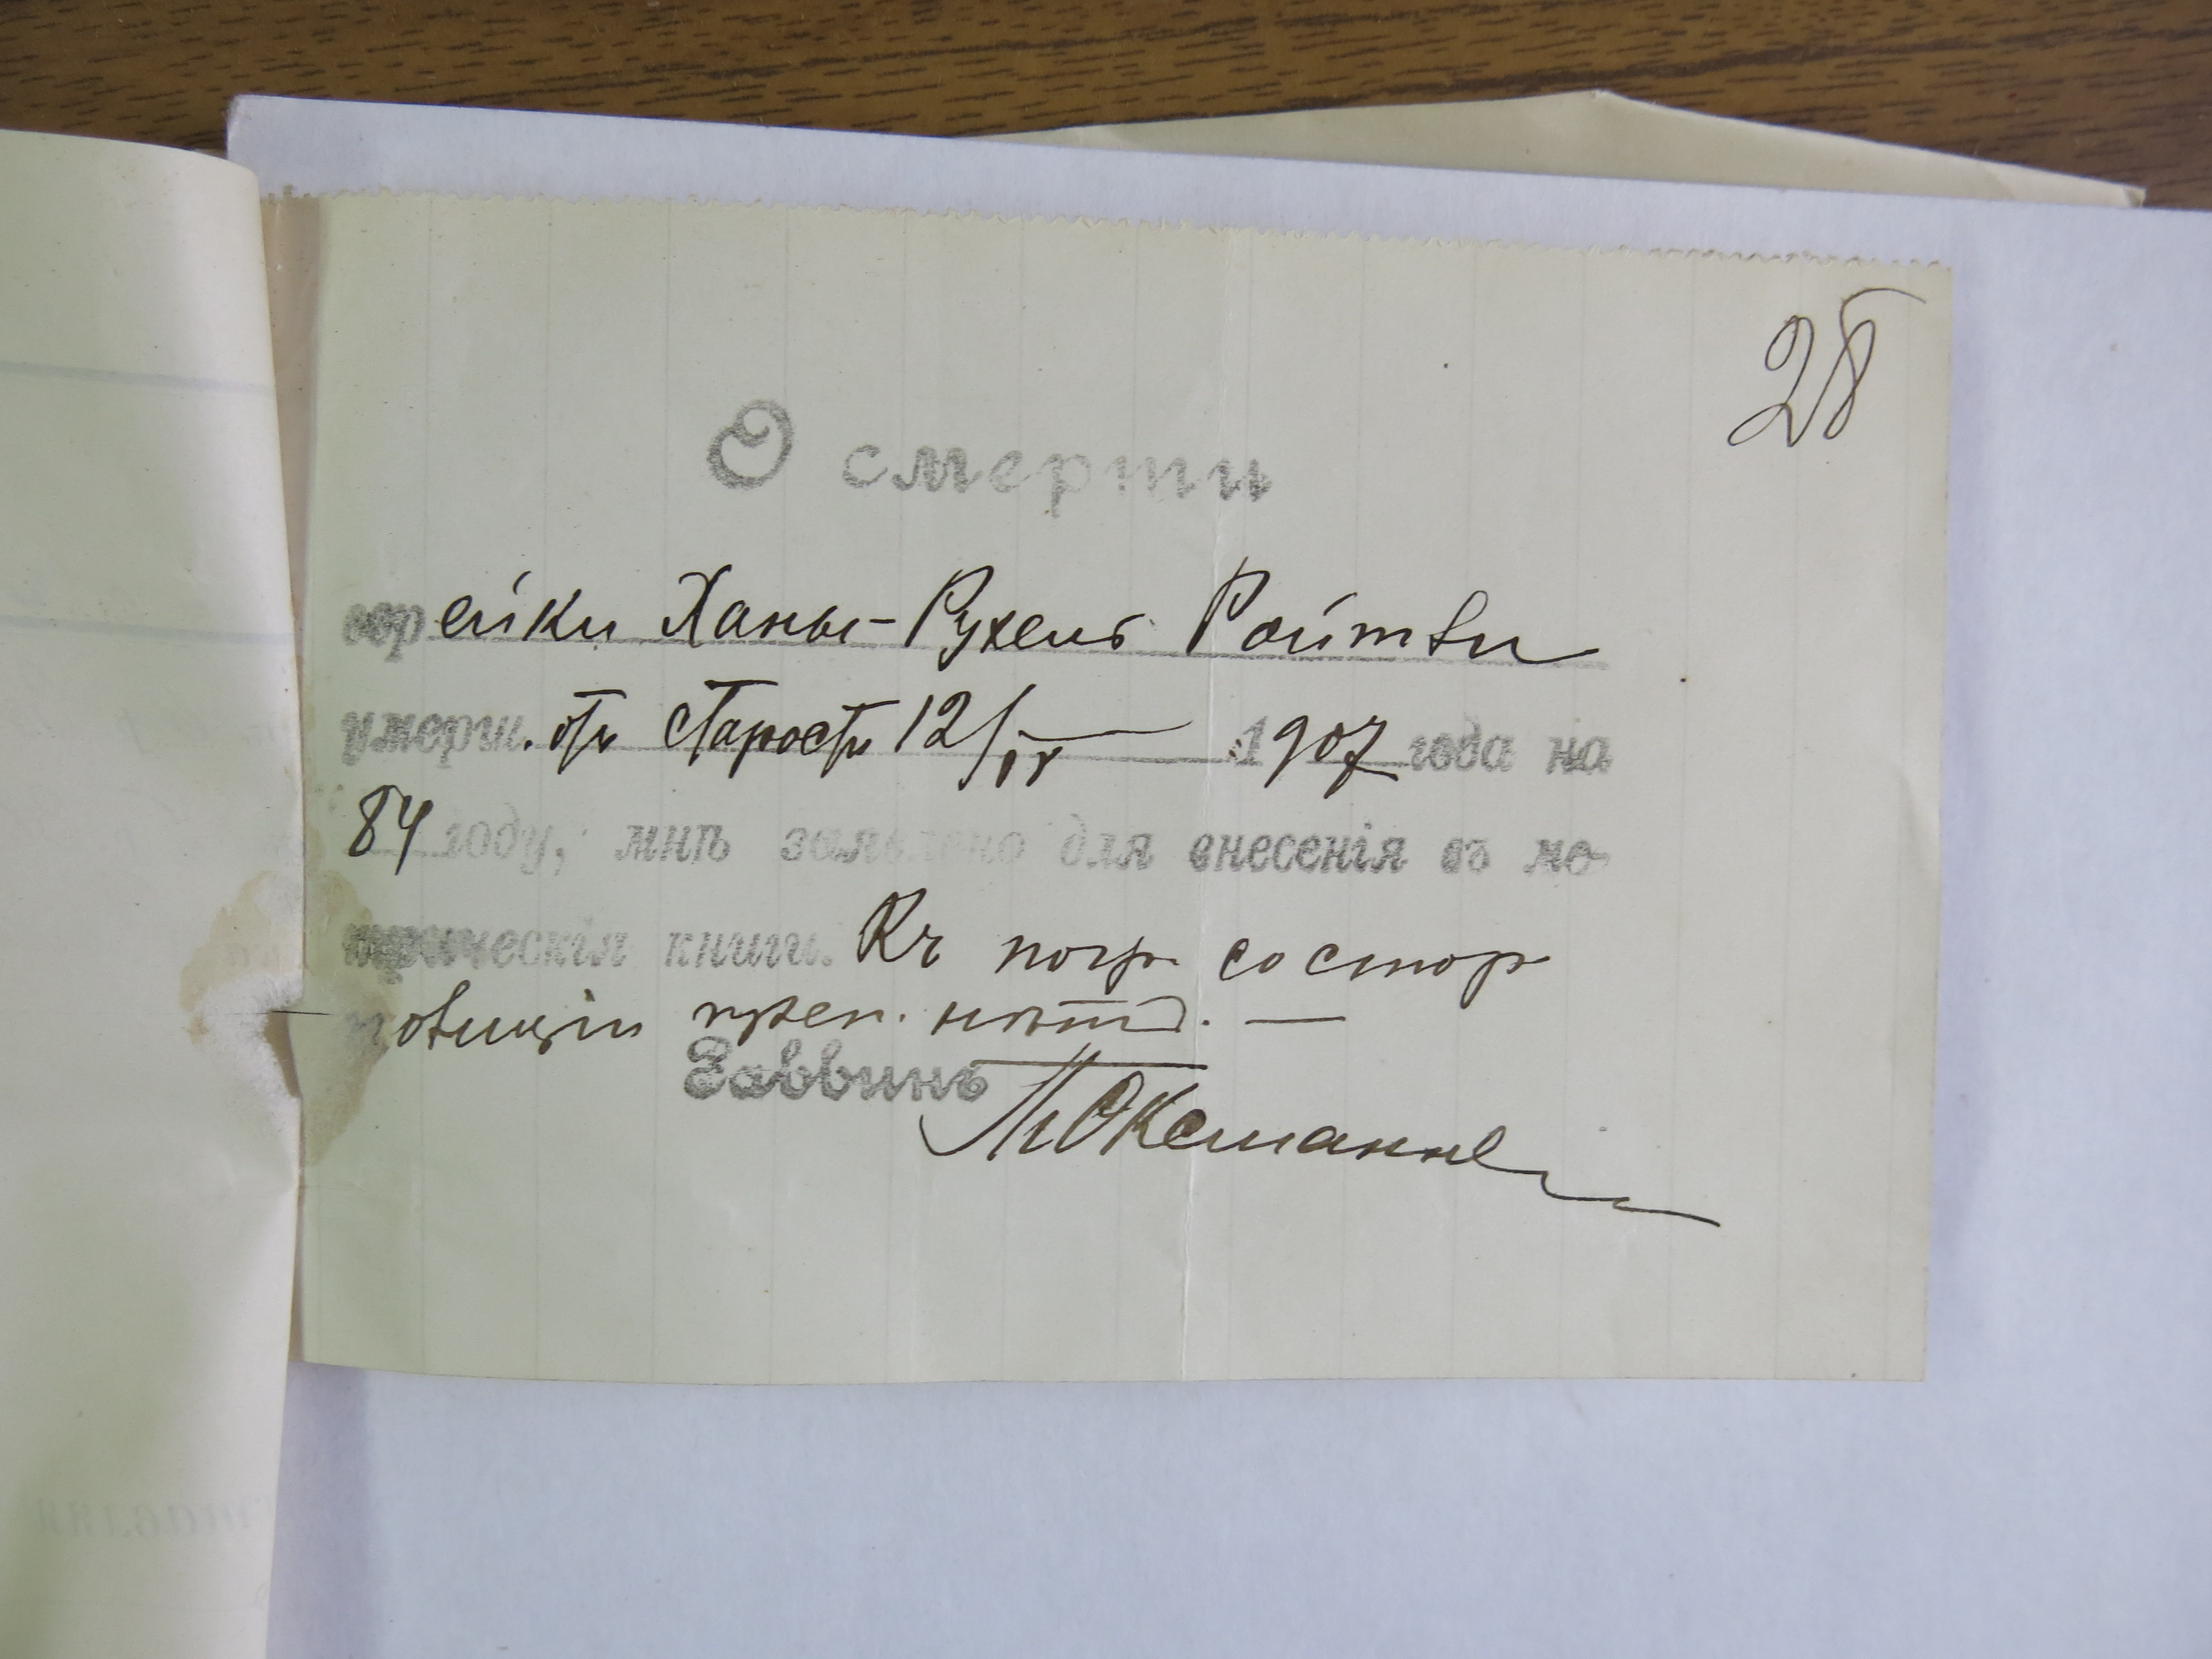 28
О смерти
еврейки Ханы-Рухель Ройтви
умерш. отъ старости 12/IV 1907 года на
84 году, мнѣ заявлено для внесенія въ ме-
трическія книги. Къ погр. со стор
полиціи преп. нѣтъ. —
Раввинъ М Оксманъ